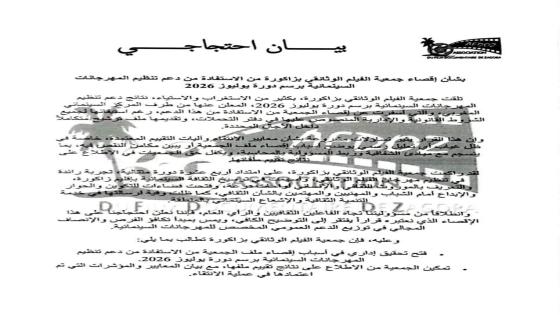 بيـــان احتجاجـــي
ASSOCIATION
DU FILM DOCUMENTAIRE DE ZAGORA
بشأن إقصاء جمعية الفيلم الوثائقي بزاكورة من الاستفادة من دعم تنظيم المهرجانات
السينمائية برسم دورة يوليوز 2026
تلقت جمعية الفيلم الوثائقي بزاكورة، بكثير من الاستغراب والاستياء، نتائج دعم تنظيم
المهرجانات السينمائية برسم دورة يوليوز 2026، المعلن عنها من طرف المركز السينمائي
المغربي، والتي أسفرت عن إقصاء الجمعية من هذا الدعم، رغم استيفائها لجميع
الشروط القانونية والإدارية المنصوص عليها في دفتر التحملات، وتقديمها ملف ترشيح متكامل
داخل الآجال المحددة.
وإن هذا القرار يثير تساؤلات بشأن معايير الانتقاء وآليات التقييم المعتمدة، خاصة في
ظل غياب أي تعليل يوضح أسباب إقصاء ملف الجمعية أو يبين مكامن النقص فيه، بما
ينسجم مع مبادئ الشفافية وربط المسؤولية بالمحاسبة، ويكفل حق الجمعيات في الاطلاع على
نتائج تقييم ملفاتها.
لقد راكمت جمعية الفيلم الوثائقي بزاكورة، على امتداد أربع عشرة دورة متتالية، تجربة رائدة
في الثقافة السينمائية بإقليم زاكورة،
والتعريف بالموروث وفتحت فضاءات للتكوين والحوار
والإبداع أمام الشباب والمهنيين والمهتمين بالشأن الثقافي، كما ظلت وفية
التنمية الثقافية والإشعاع السينمائي بالمنطقة
وانطلاقا من مسؤوليتنا تجاه الفاعلين الثقافيين والرأي العام، فإننا نعلن احتجاجنا على هذا
الإقصاء الذي نعتبره قرارا يفتقر إلى التوضيح الكافي، ويمس بمبدأ تكافؤ الفرص والإنصاف
المجالي في توزيع الدعم العمومي المخصص للمهرجانات السينمائية.
وعليه، فإن جمعية الفيلم الوثائقي بزاكورة تطالب بما يلي:
• فتح تحقيق إداري في أسباب إقصاء ملف الجمعية من الاستفادة من دعم تنظيم
المهرجانات السينمائية برسم دورة يوليوز 2026.
• تمكين الجمعية من الاطلاع على نتائج تقييم ملفها، مع بيان المعايير والمؤشرات التي تم
اعتمادها في عملية الانتقاء.